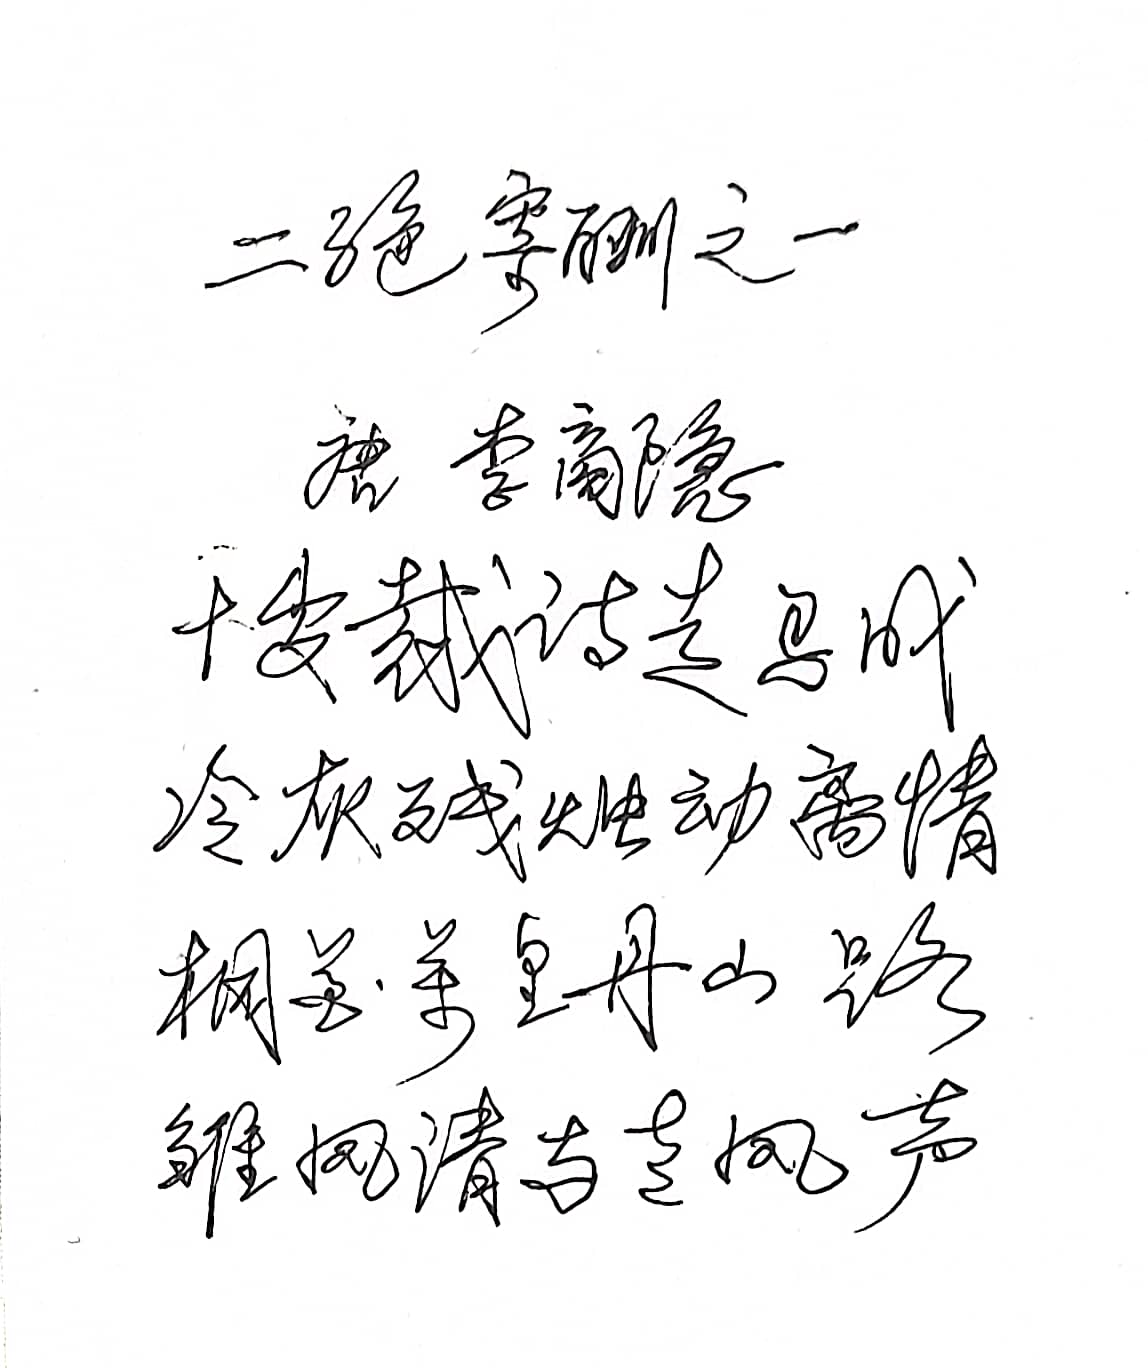 二绝寄酬之一
唐 李商隐
十岁裁诗走马成
冷灰残烛动离情
桐花万里丹山路
雏凤清于老凤声